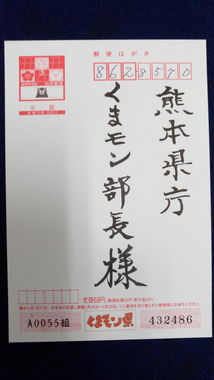 郵便はがき
8628570
熊本県庁
くまモン部長様
年賀
定価68円
くまモン県
A0055組
432486